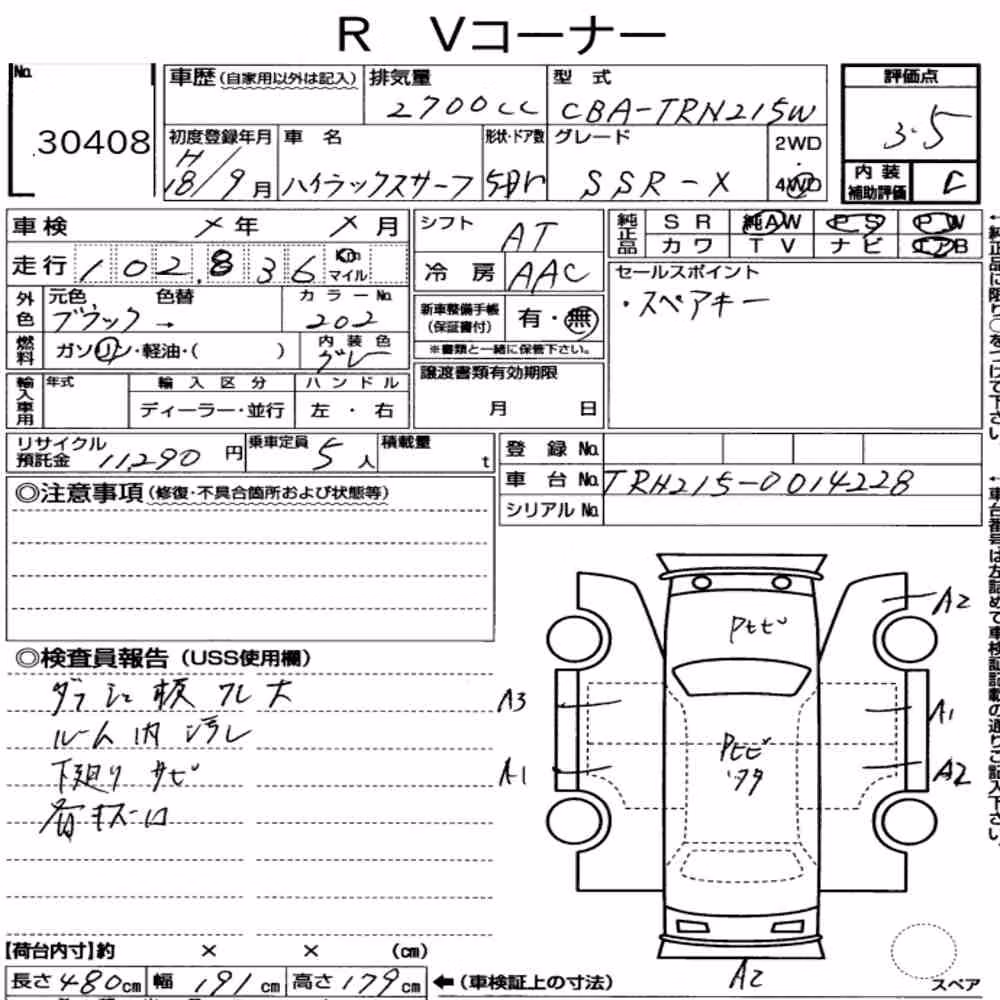 R Vコーナー
No.
30408
車歴(自家用以外は記入)
排気量
2700cc
型式
CBA-TRN215W
評価点
3.5
内装補助評価
C
初度登録年月
H
18/9月
車名
ハイラックスサーフ
形状・ドア数
5Dr
グレード
SSR-X
2WD
・
4WD
車検
×年 ×月
シフト
AT
純正品
SR 純AW PS PW
カワ TV ナビ エアB
走行
102,836
Km
マイル
冷房
AAC
セールスポイント
・スペアキー
外色
元色 色替
ブラック→
カラーNo.
202
新車整備手帳
(保証書付)
有・無
※書類と一緒に保管下さい。
燃料
ガソリン・軽油・( )
内装色
グレー
輸入車用
年式
輸入区分
ディーラー・並行
ハンドル
左・右
譲渡書類有効期限
月 日
リサイクル
預託金
11,290円
乗車定員
5人
積載量
t
登録No.
車台No.
TRN215-0014228
シリアルNo.
◎注意事項(修復・不具合箇所および状態等)
◎検査員報告(USS使用欄)
ダッシュ板 ワレ大
ルーム内 汚レ
下廻り サビ
A2
Pモビ
A3
A1
A1
A2
A2
【荷台内寸】約 × × (cm)
長さ480cm 幅191cm 高さ179cm
←(車検証上の寸法)
スペア
←純正品に限り○をつけて下さい。
←車台番号は左詰めで車検証記載の通りご記入下さい。